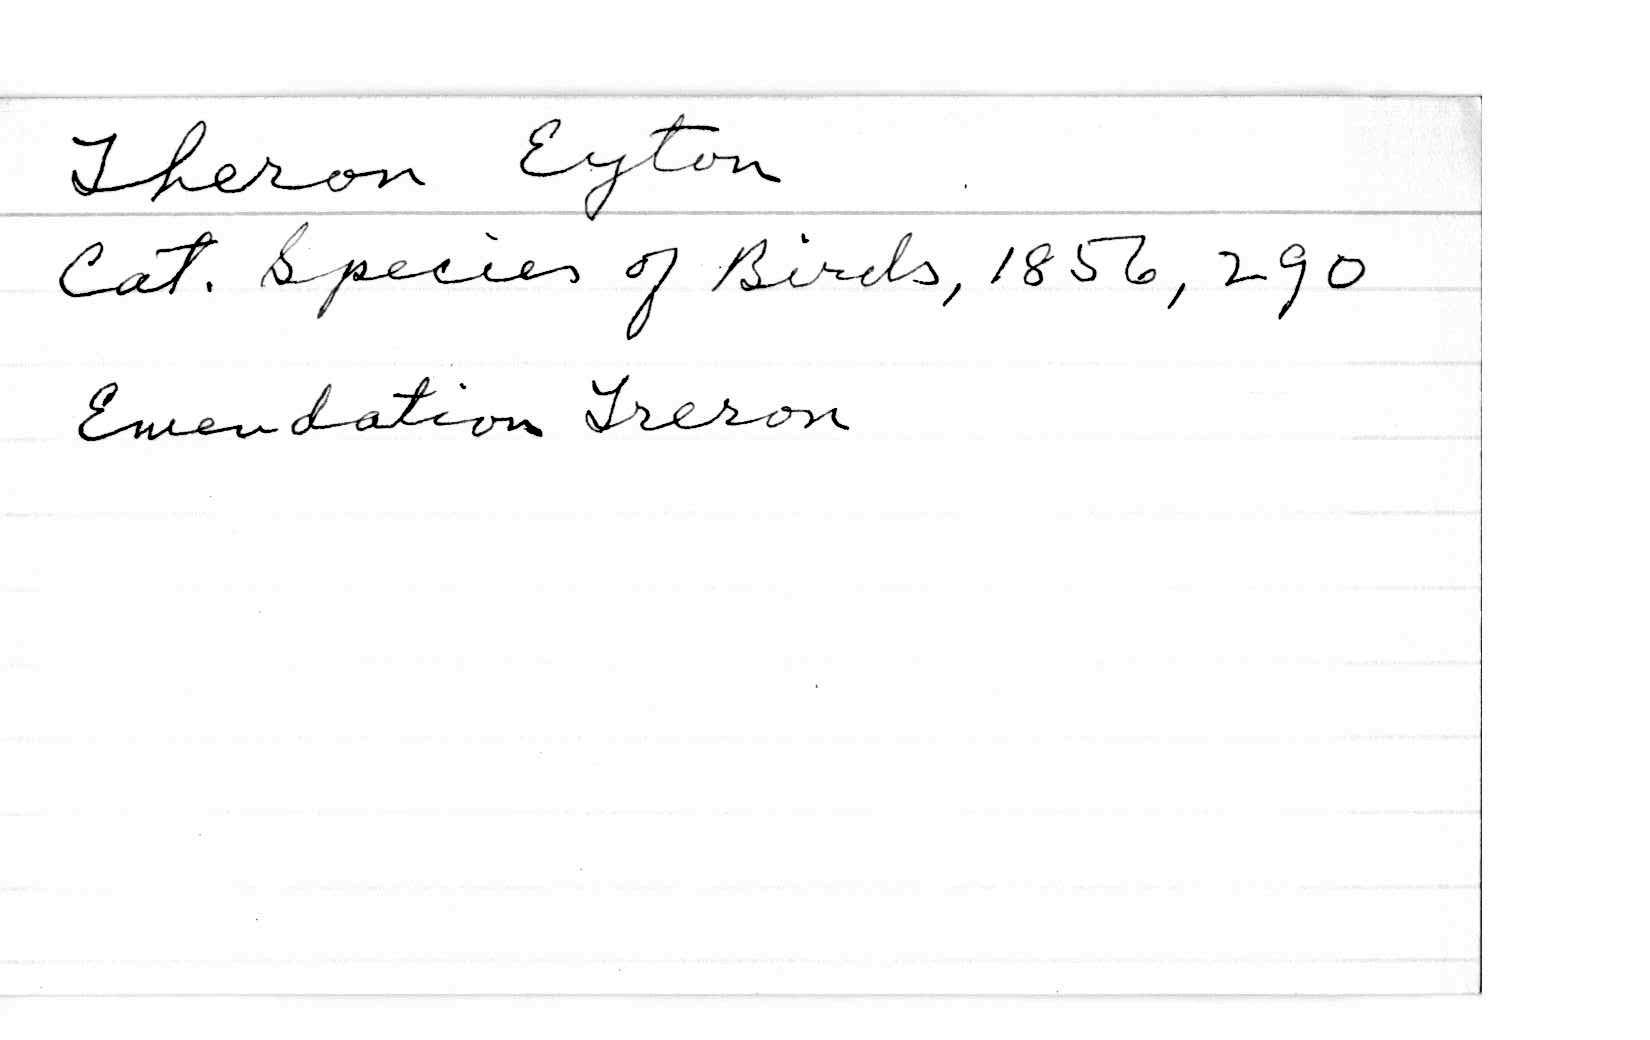 Theron Eyton
Cat. Species of Birds, 1856, 290
Emendation Treron